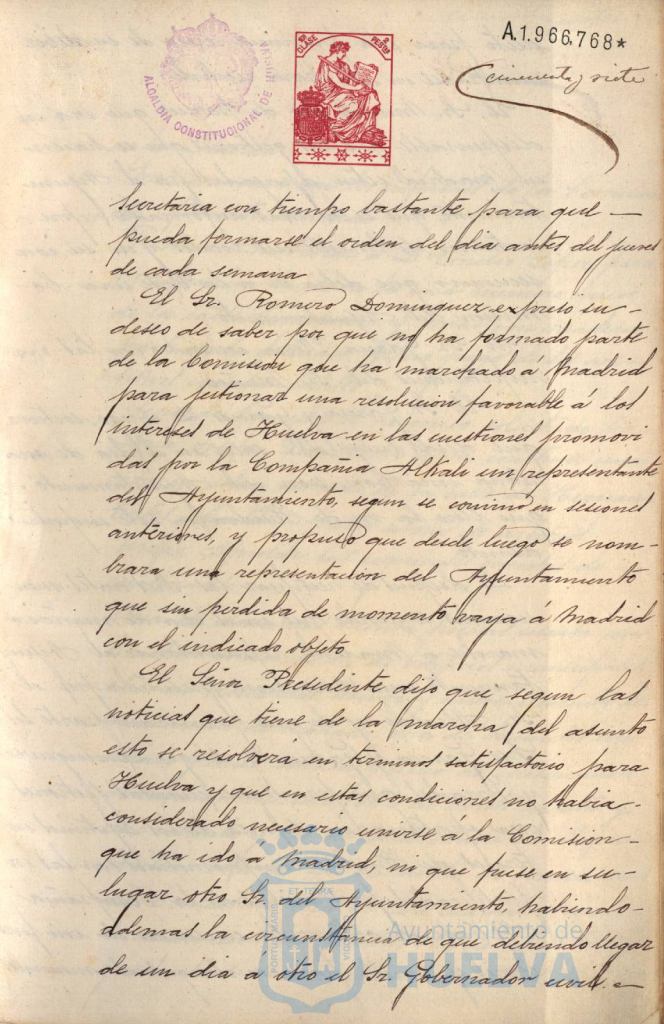 A.1.966,768*
cincuenta y siete
10ª CLASE
PESTAS 2
ALCALDIA CONSTITUCIONAL DE HUELVA
Secretaria con tiempo bastante para que —
pueda formarse el orden del dia antes del jueves
de cada semana
El Sr. Romero Dominguez, expresó su -
deseo de saber por que no ha formado parte
de la Comision que ha marchado á Madrid
para jestionar una resolucion favorable á los
intereses de Huelva en las cuestiones promovi
das por la Compañia Alkali un representante
del Ayuntamiento, segun se convino en sesiones
anteriores, y propuso que desde luego se nom-
brara una representacion del Ayuntamiento
que sin perdida de momento vaya á Madrid
con el indicado objeto
El Señor Presidente dijo que segun las
noticias que tiene de la marcha del asunto
esto se resolverá en terminos satisfactorio para
Huelva y que en estas condiciones no habia -
considerado necesario unirse á la Comision -
que ha ido á Madrid, ni que fuese en su -
lugar otro Sr. del Ayuntamiento, habiendo -
ademas la circunstancia de que debiendo llegar
de un dia á otro el Sr. Gobernador civil. -
Ayuntamiento de
HUELVA